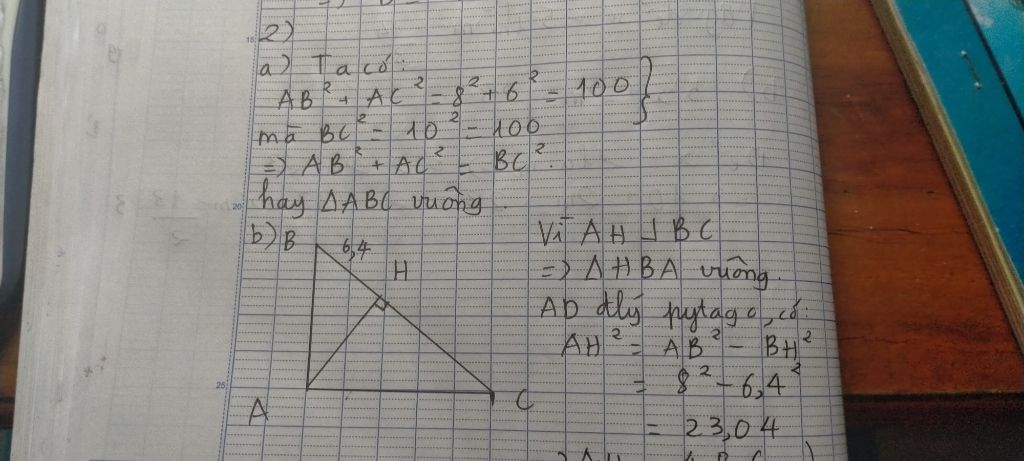 2)
a) Ta có:
AB² + AC² = 8² + 6² = 100 }
mà BC² = 10² = 100
=> AB² + AC² = BC².
hay ΔABC vuông.
b) B
6,4
H
A
C
Vì AH ⊥ BC
=> ΔHBA vuông.
AD đlý pytago, có:
AH² = AB² - BH²
= 8² - 6,4²
= 23,04